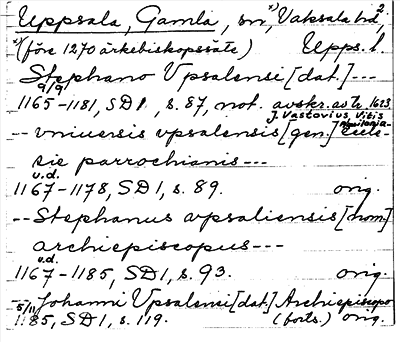 Uppsala, Gamla, sn, x) Vaksala hd, 2.
x) (före 1270 ärkebiskopssäte) Upps. l.
Stephano Vpsalensi [dat.] ---
9/9
1165-1181, SD1, s. 87, not. avskr. av tr. 1623
J. Vastovius, Vitis Aquilonia.
-- vniuersis vpsalensis [gen.] Eccle-
sie parrochianis ---
u.d.
1167-1178, SD1, s. 89. orig.
-- Stephanus arpsaliensis [nom.]
archiepiscopus ---
u.d.
1167-1185, SD1, s. 93. orig.
-- Johanni Vpsalensi [dat.] Archiepiscopo
5/11
1185, SD1, s. 119. (forts.) orig.